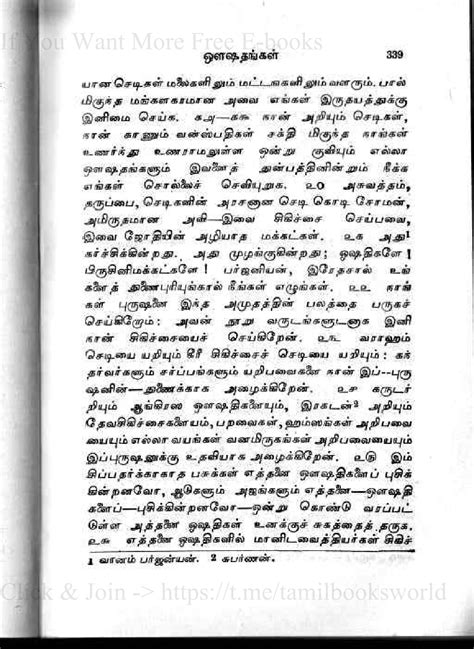 If You Want More Free E-books
ஔஷதங்கள் 339
யான செடிகள் மலைகளிலும் மட்டங்களிலும் வளரும். பால்
மிகுந்த மங்களகரமான அவை எங்கள் இருதயத்துக்கு
இனிமை செய்க. ௧௮—௧௯ நான் அறியும் செடிகள்,
நான் காணும் வன்ஸ்பதிகள் சக்தி மிகுந்த நாங்கள்
உணர்ந்து உணராமலுள்ள ஒன்று குவியும் எல்லா
ஔஷதங்களும் இவனைத் துன்பத்தினின்றும் நீக்க
எங்கள் சொல்லைச் செவியுறுக. ௨0 அசுவத்தம்,
தருப்பை, செடிகளின் அரசனான செடி கொடி சோமன்,
அமிருதமான அவி—இவை சிகிச்சை செய்பவை,
இவை ஜோதியின் அழியாத மக்கட்கள். ௨௧ அது1
கர்ச்சிக்கின்றது. அது முழங்குகின்றது; ஓஷதிகளே !
பிருசினிமக்கட்களே ! பர்ஜனியன், இரேதசால் உங்
களைத் துணைபுரியுங்கால் நீங்கள் எழுங்கள். ௨௨ நாங்
கள் புருஷனை இந்த அமுதத்தின் பலத்தை பருகச்
செய்கிறோம்: அவன் நூறு வருடங்களுடனாக இனி
நான் சிகிச்சையைச் செய்கிறேன். ௨௩ வராஹம்
செடியை யறியும் கீரி சிகிச்சைச் செடியை யறியும் : கந்
தர்வர்களும் சர்ப்பங்களும் யறிபவைகளை நான் இப்-புரு
ஷனின்—துணைக்காக அழைக்கிறேன். ௨௪ கருடர்
றியும் ஆங்கிரஸ ஔஷதிகளையும், இரகடன்2 அறியும்
தேவசிகிச்சைகளையம், பறவைகள், ஹம்ஸங்கள் அறிபவை
யையும் எல்லா வயங்கள் வனமிருகங்கள் அறிபவையையும்
இப்புருஷனுக்கு உதவியாக அழைக்கிறேன். ௨௫ இம்
சிப்பதர்க்காகாத பசுக்கள் எத்தனை ஔஷதிகளைப் புசிக்
கின்றனவோ, ஆடுகளும் அஜங்களும் எத்தனை—ஔஷதி
களைப்—புசிக்கின்றனவோ—ஒன்று கொண்டு வரப்பட்
டுள்ள அத்தனை ஓஷதிகள் உனக்குச் சுகத்தைத் தருக.
௨௬ எத்தனை ஓஷதிகளில் மானிடவைத்தியர்கள் சிகிச்
1 வானம் பர்ஜன்யன். 2 சுபர்ணன்.
Click & Join -> https://t.me/tamilbooksworld